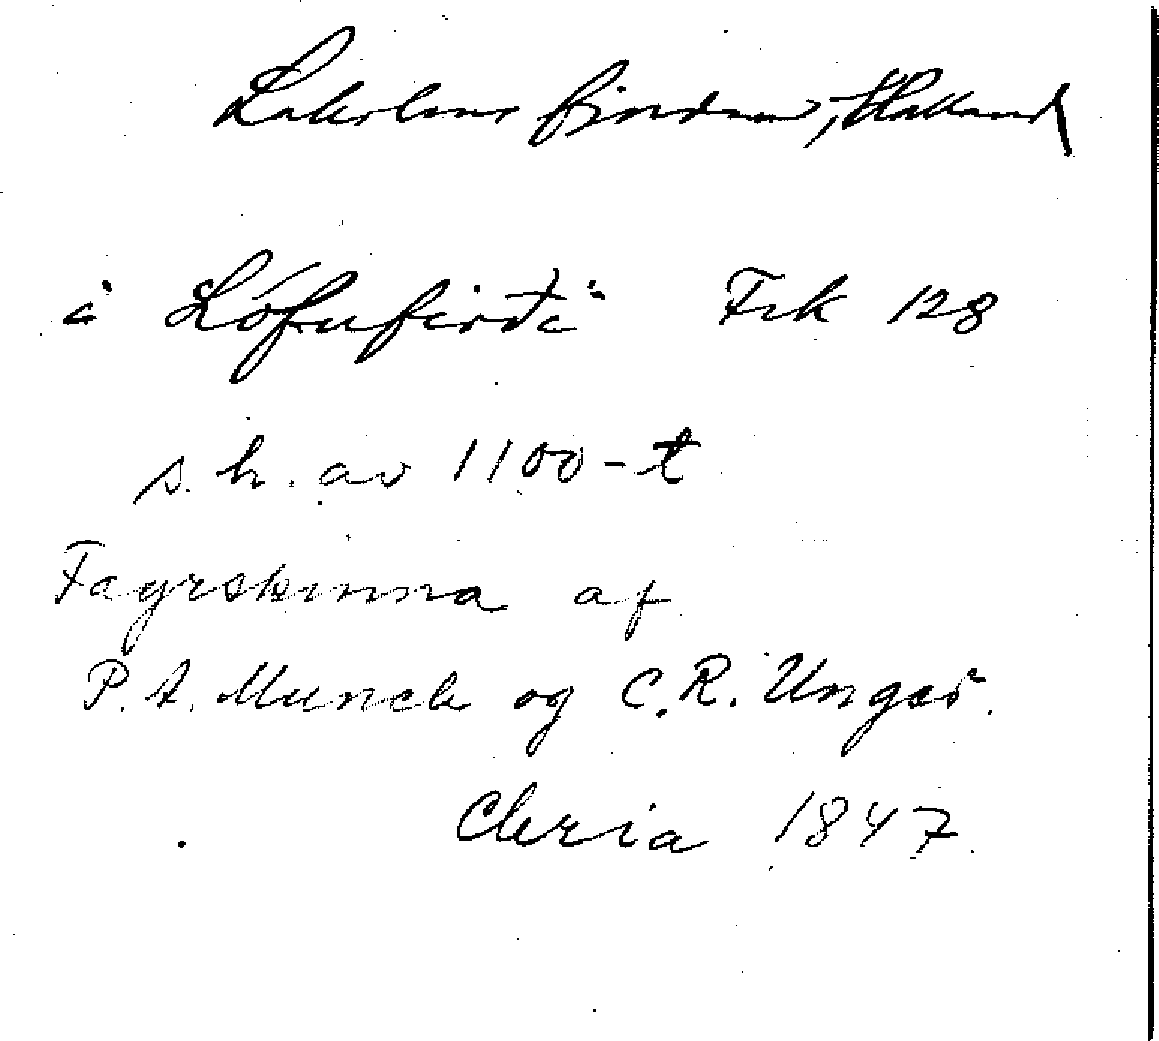 Laholms fjorden, Halland
i Lófufirði Fsk 128
s. h. av 1100-t
Fagrskinna af
P. A. Munch og C. R. Unger.
Chria 1847.